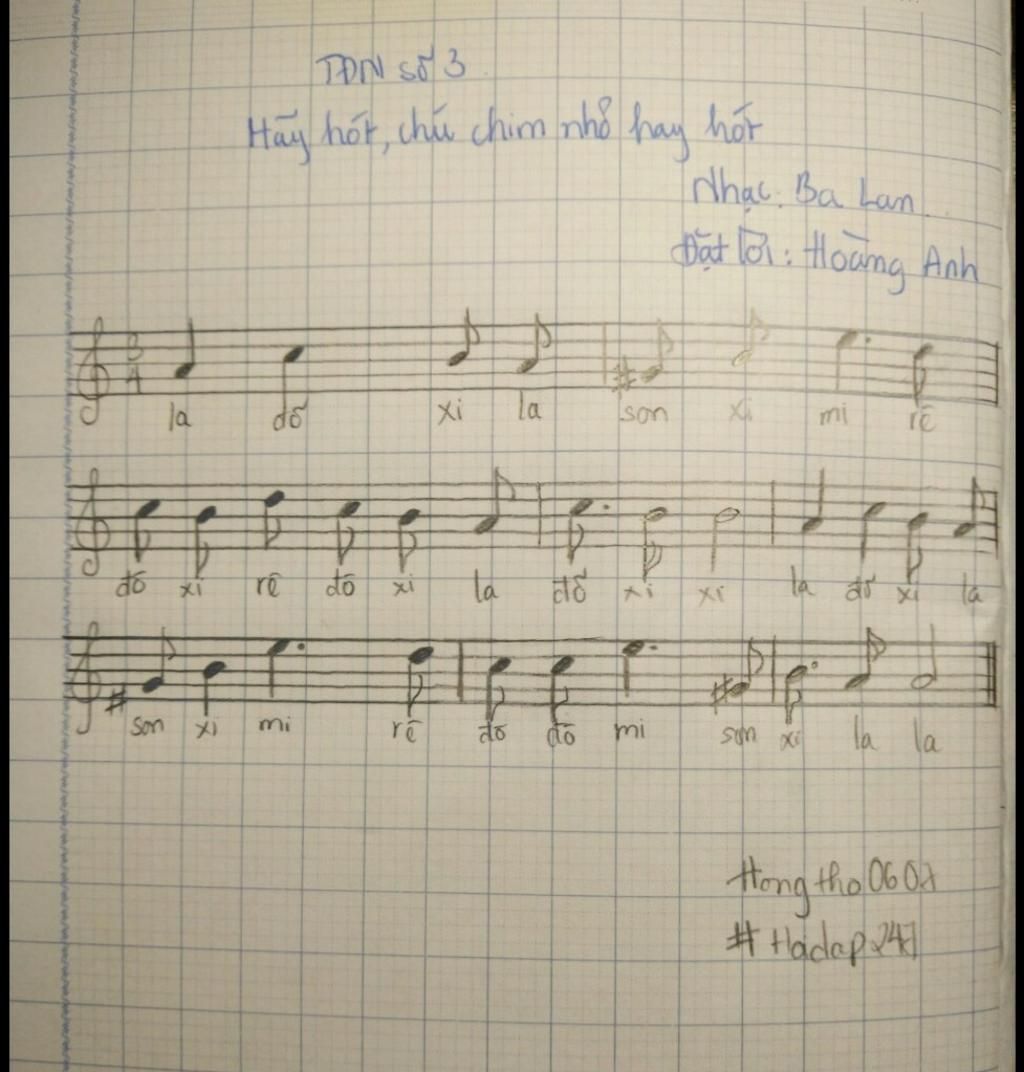 TĐN số 3
Hãy hót, chú chim nhỏ hay hót
Nhạc: Ba Lan
Đặt lời: Hoàng Anh
3
4
la đố xi la son xi mi rê
đô xi rê đô xi la đố xi xi la đố xi la
son xi mi rê đô đô mi son xi la la
Hongtho060
# Hoidap247